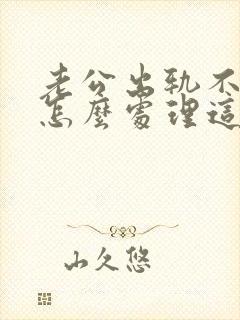 老公出轨不
怎麼處理這
山久悠